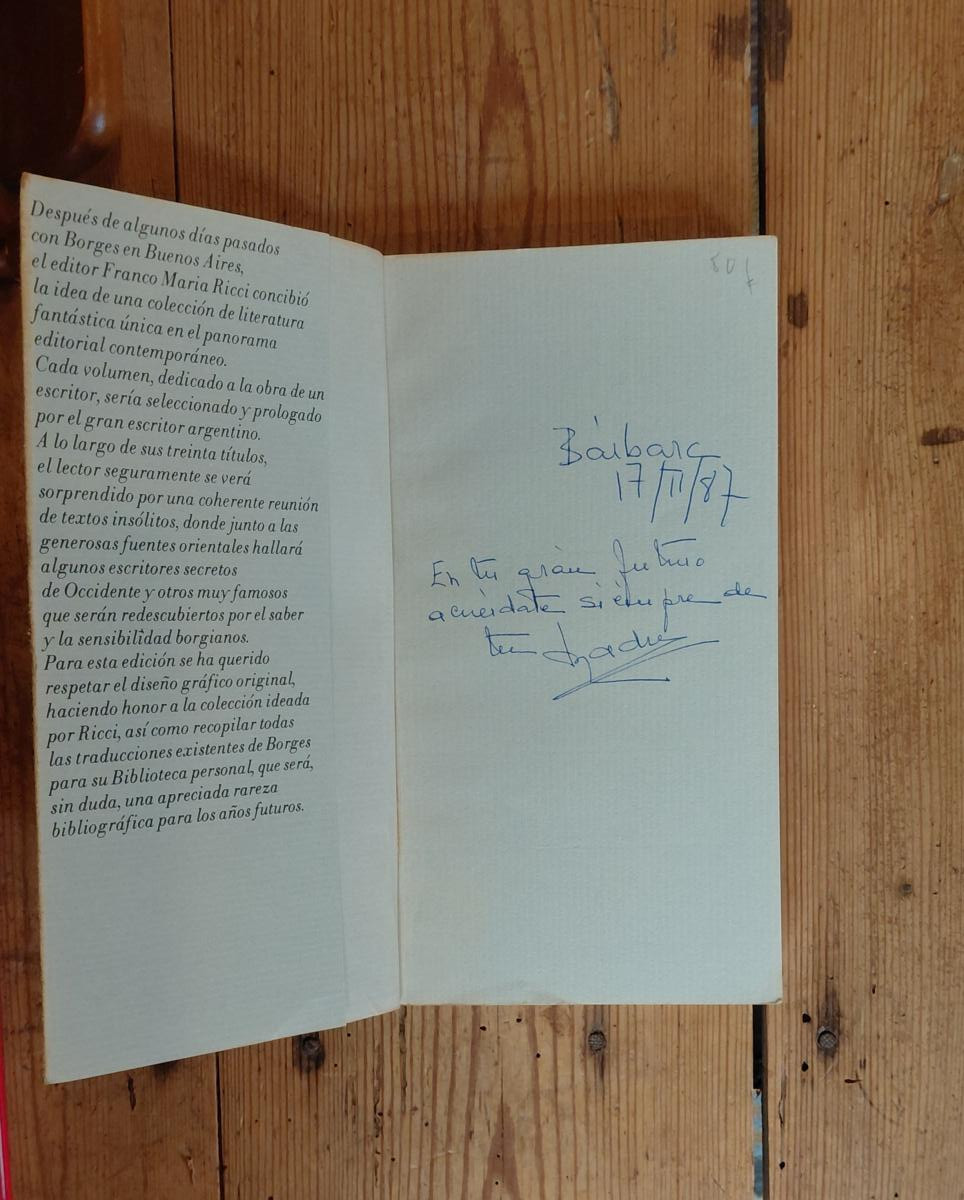 Después de algunos días pasados
con Borges en Buenos Aires,
el editor Franco Maria Ricci concibió
la idea de una colección de literatura
fantástica única en el panorama
editorial contemporáneo.
Cada volumen, dedicado a la obra de un
escritor, sería seleccionado y prologado
por el gran escritor argentino.
A lo largo de sus treinta títulos,
el lector seguramente se verá
sorprendido por una coherente reunión
de textos insólitos, donde junto a las
generosas fuentes orientales hallará
algunos escritores secretos
de Occidente y otros muy famosos
que serán redescubiertos por el saber
y la sensibilidad borgianos.
Para esta edición se ha querido
respetar el diseño gráfico original,
haciendo honor a la colección ideada
por Ricci, así como recopilar todas
las traducciones existentes de Borges
para su Biblioteca personal, que será,
sin duda, una apreciada rareza
bibliográfica para los años futuros.
Bárbara
17/II/87
En tu gran futuro
acuérdate siempre de
tu